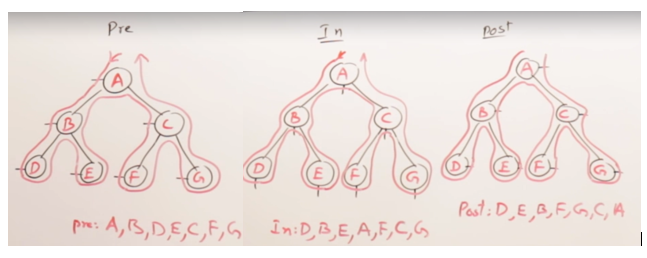 Pre
A
B
C
D
E
F
G
Pre: A, B, D, E, C, F, G
In
A
B
C
D
E
F
G
In: D, B, E, A, F, C, G
Post
A
B
C
D
E
F
G
Post: D, E, B, F, G, C, A